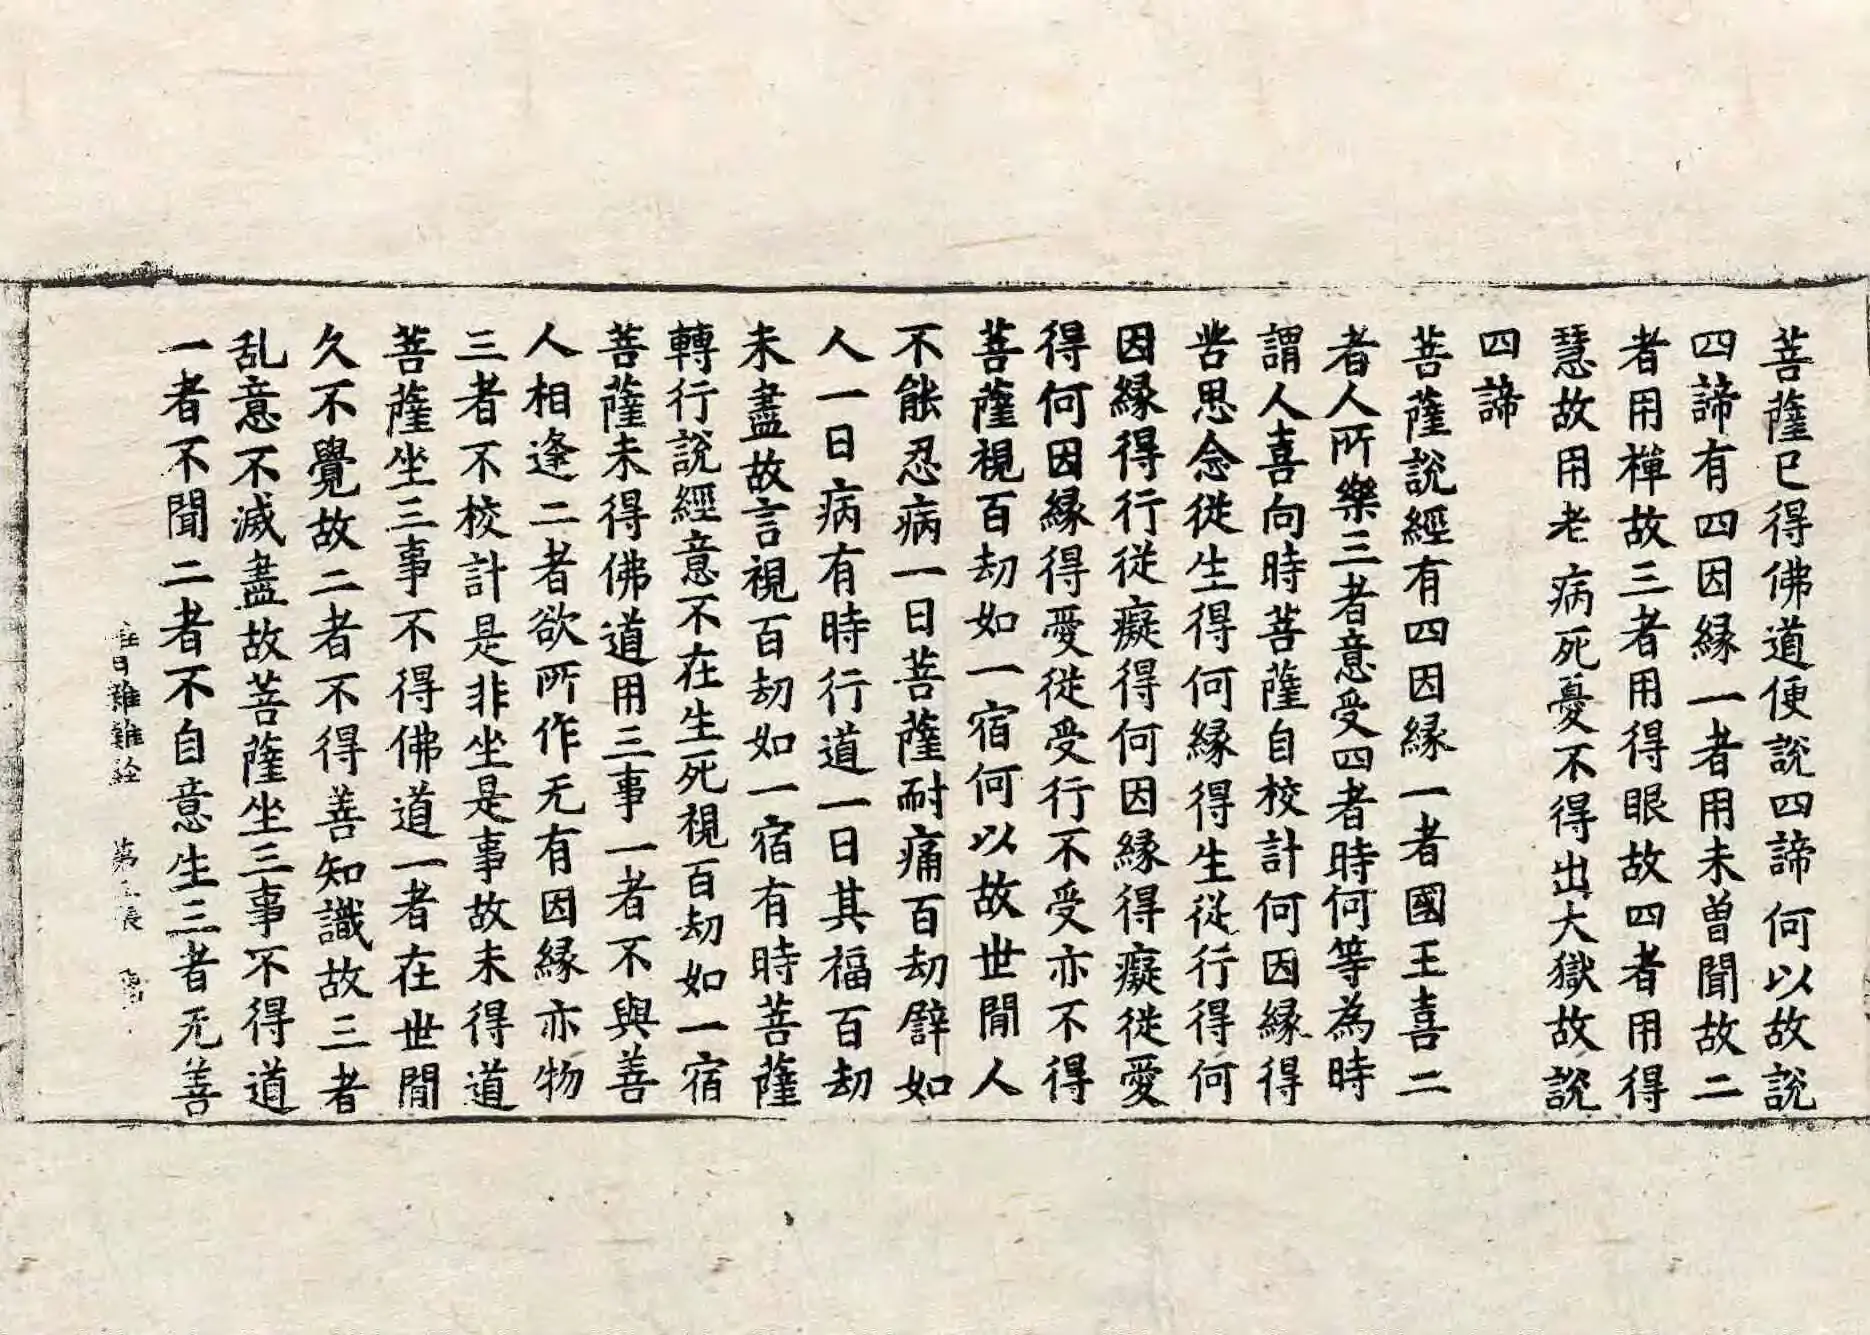 菩薩已得佛道便說四諦何以故說
四諦有四因縁一者用未曽聞故二
者用禪故三者用得眼故四者用得
慧故用老病死憂不得出大獄故說
四諦
菩薩說經有四因縁一者國王喜二
者人所樂三者意受四者時何等為時
謂人喜向時菩薩自校計何因縁得
甞思念從生得何縁得生從行得何
因縁得行從癡得何因縁得癡從愛
得何因縁得愛從受行不受亦不得
菩薩視百劫如一宿何以故世閒人
不能忍病一日菩薩耐痛百劫辟如
人一日病有時行道一日其福百劫
未盡故言視百劫如一宿有時菩薩
轉行說經意不在生死視百劫如一宿
菩薩未得佛道用三事一者不與善
人相逢二者欲所作无有因縁亦物
三者不校計是非坐是事故未得道
菩薩坐三事不得佛道一者在世閒
久不覺故二者不得善知識故三者
乱意不滅盡故菩薩坐三事不得道
一者不聞二者不自意生三者无善
難 第 張